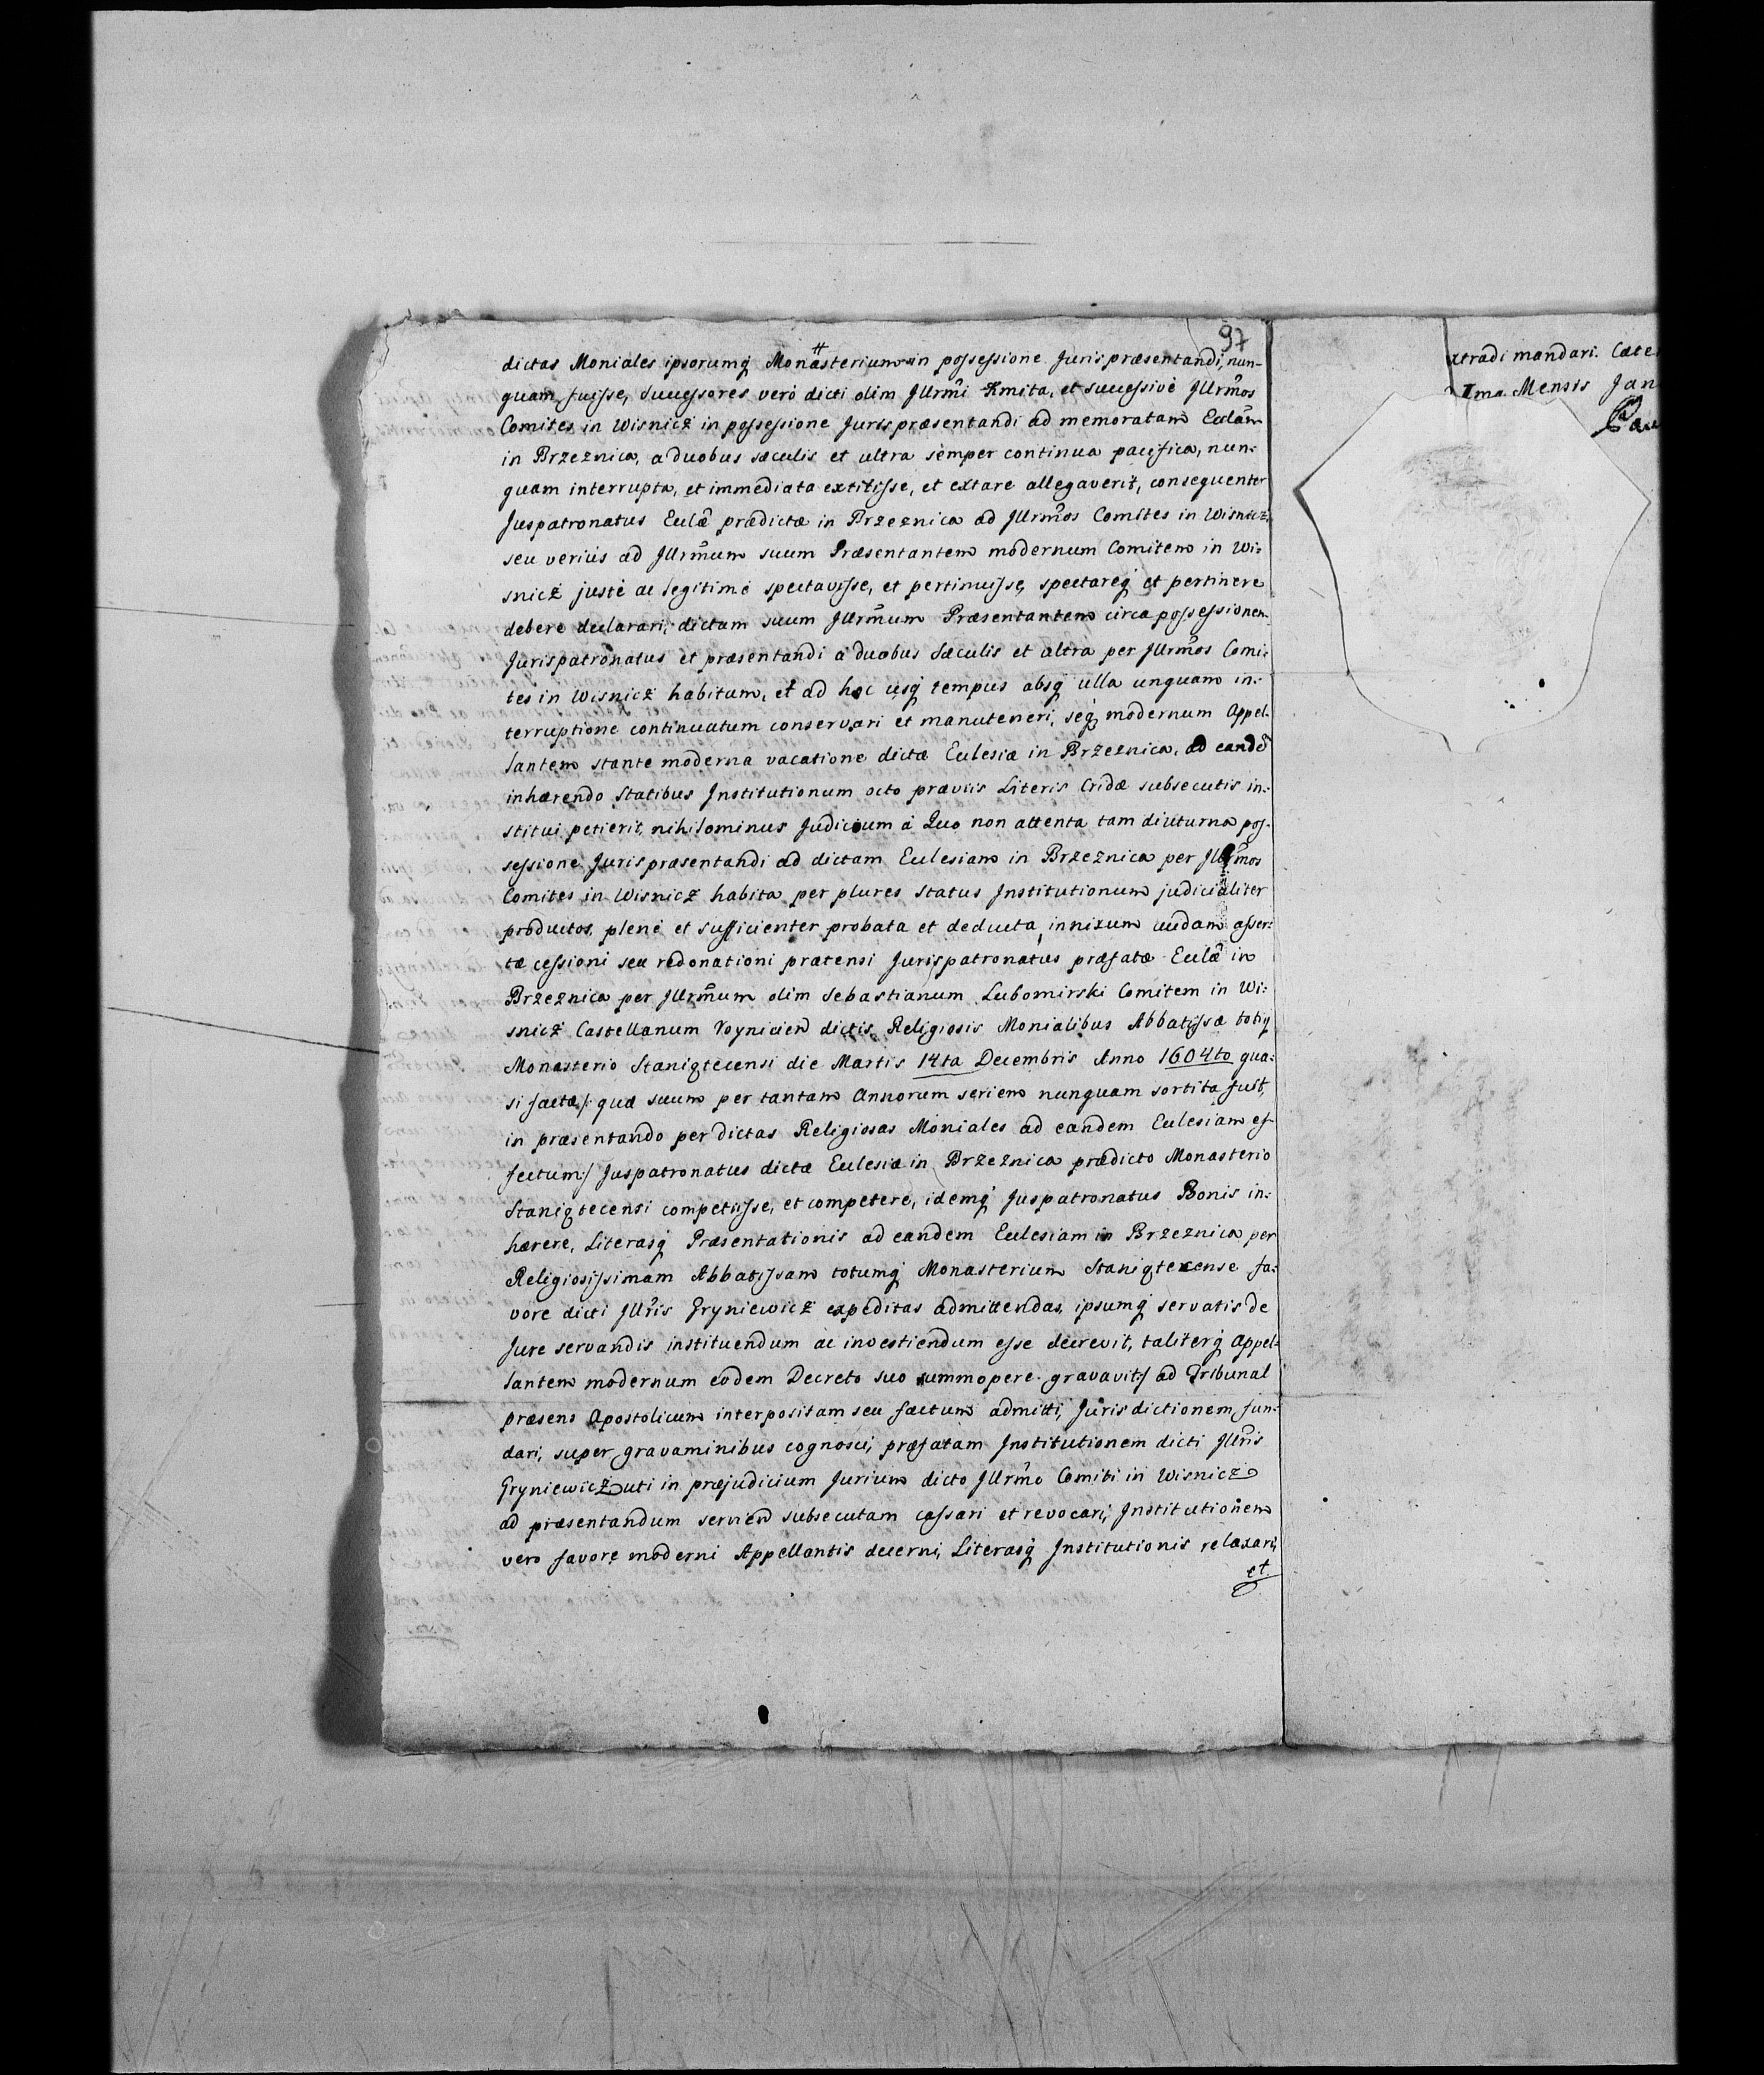 97
dictas Moniales ipsorumq Monasterium in possessione Juris præsentandi, nun-
quam fuisse, Successores verò dicti olim Jllrmi Kmita, et successivè Jllrmos
Comites in Wisnicz in possessione Juris præsentandi ad memoratam Eclam
in Brzeznica, a duobus sæculis et ultra semper continua pacifica, nun-
quam interrupta, et immediata extitisse, et extare allegaverit, consequenter
Juspatronatus Eclæ prædictæ in Brzeznica ad Jllrmos Comites in Wisnicz,
seu veriùs ad Jllrmum suum Præsentantem modernum Comitem in Wi-
snicz justè ac legitimè spectavisse, et pertinuisse, spectareq et pertinere
debere declarari, dictum suum Jllrmum Præsentantem circa possessionem
Jurispatronatus et præsentandi à duobus Sæculis et ultra per Jllrmos Comi-
tes in Wisnicz habitum, et ad hoc usq tempus absq ulla unquam in-
terruptione continuatum conservari et manuteneri, seq modernum Appel-
lantem stante moderna vacatione dictæ Ecclesiæ in Brzeznica, ad eandē
inhærendo Statibus Institutionum octo præviis Literis Cridæ subsecutis in-
stitui petierit, nihilominus Judicium à Quo non attenta tam diuturna pos-
sessione Juris præsentandi ad dictam Ecclesiam in Brzeznica per Jllrmos
Comites in Wisnicz habita per plures status Institutionum judicialiter
productos, plenè et sufficienter probata et deducta, innixum nudam asser-
tæ cessioni seu redonationi prætensi Jurispatronatus præfatæ Eclæ in
Brzeznica per Jllrmum olim Sebastianum Lubomirski Comitem in Wi-
snicz Castellanum Voynicien dictis Religiosis Monialibus Abbatissæ totiq
Monasterio Staniątecensi die Martis 14ta Decembris Anno 1604to qua-
si factæ /: quæ suum per tantam Annorum seriem nunquam sortita fuit,
in præsentando per dictas Religiosas Moniales ad eandem Ecclesiam ef-
fectum :/ Juspatronatus dictæ Ecclesiæ in Brzeznica prædicto Monasterio
Staniątecensi competiisse, et competere, idemq Juspatronatus Bonis in-
hærere, Literasq Præsentationis ad eandem Ecclesiam in Brzeznica per
Religiosissimam Abbatissam totumq Monasterium Staniątecense fa-
vore dicti Jllris Gryniewicz expeditas admittendas, ipsumq servatis de
Jure servandis instituendum ac investiendum esse decrevit, taliterq Appel-
lantem modernum eodem Decreto suo summopere gravavit :/ ad Tribunal
præsens Apostolicum interpositam seu factum admitti, Jurisdictionem fun-
dari, super gravaminibus cognosci, præfatam Institutionem dicti Jllris
Gryniewicz uti in præjudicium Jurium dicto Jllrmo Comiti in Wisnicz
ad præsentandum servien subsecutam cassari et revocari, Institutionem
vero favore moderni Appellantis decerni, Literasq Institutionis relaxari,
et
xtradi mandari.
Ima Mensis Jan